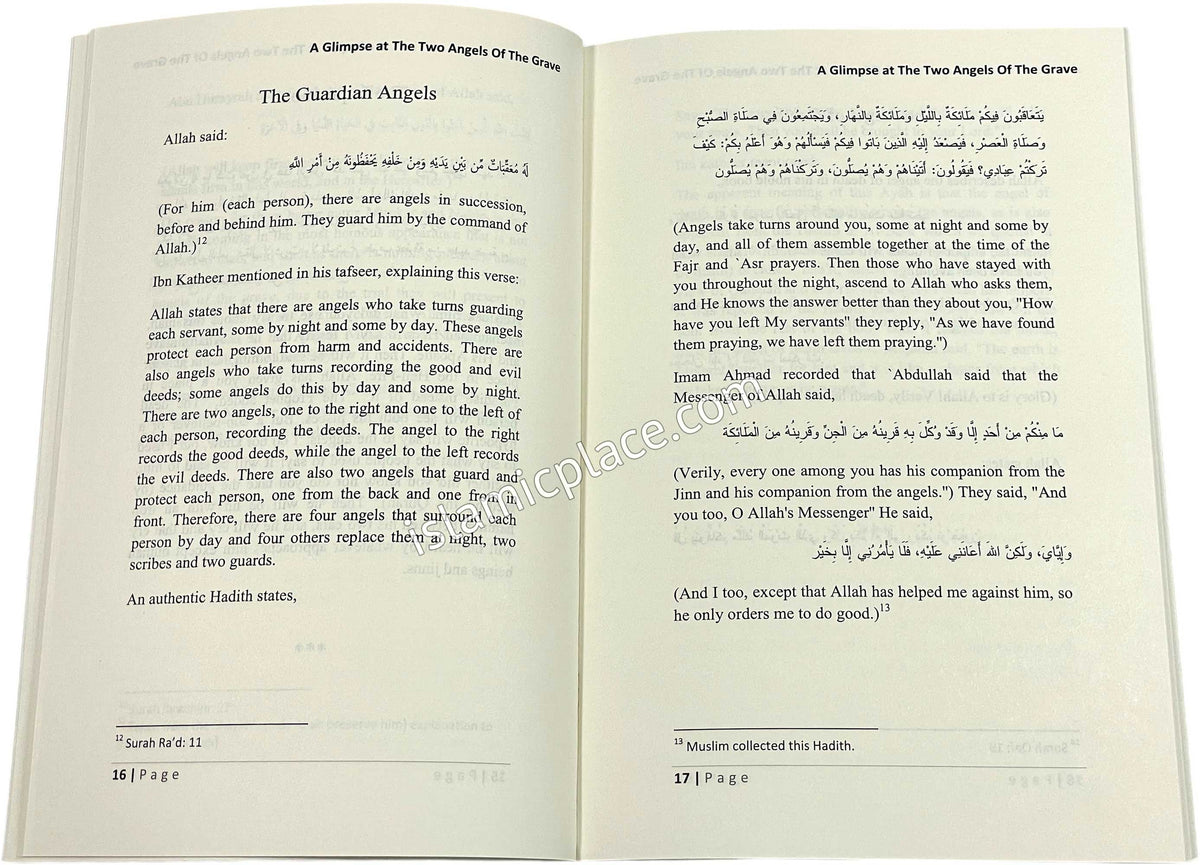 A Glimpse at The Two Angels Of The Grave
The Guardian Angels
Allah said:
لَهُ مُعَقِّبَاتٌ مِّن بَيْنِ يَدَيْهِ وَمِنْ خَلْفِهِ يَحْفَظُونَهُ مِنْ أَمْرِ اللَّهِ
(For him (each person), there are angels in succession,
before and behind him. They guard him by the command of
Allah.)12
Ibn Katheer mentioned in his tafseer, explaining this verse:
Allah states that there are angels who take turns guarding
each servant, some by night and some by day. These angels
protect each person from harm and accidents. There are
also angels who take turns recording the good and evil
deeds; some angels do this by day and some by night.
There are two angels, one to the right and one to the left of
each person, recording the deeds. The angel to the right
records the good deeds, while the angel to the left records
the evil deeds. There are also two angels that guard and
protect each person, one from the back and one from in
front. Therefore, there are four angels that surround each
person by day and four others replace them at night, two
scribes and two guards.
An authentic Hadith states,
12 Surah Ra'd: 11
16 | Page
A Glimpse at The Two Angels Of The Grave
يَتَعَاقَبُونَ فِيكُمْ مَلَائِكَةٌ بِاللَّيْلِ وَمَلَائِكَةٌ بِالنَّهَارِ، وَيَجْتَمِعُونَ فِي صَلَاةِ الصُّبْحِ
وَصَلَاةِ الْعَصْرِ، فَيَصْعَدُ إِلَيْهِ الَّذِينَ بَاتُوا فِيكُمْ فَيَسْأَلُهُمْ وَهُوَ أَعْلَمُ بِكُمْ: كَيْفَ
تَرَكْتُمْ عِبَادِي؟ فَيَقُولُونَ: أَتَيْنَاهُمْ وَهُمْ يُصَلُّونَ، وَتَرَكْنَاهُمْ وَهُمْ يُصَلُّونَ
(Angels take turns around you, some at night and some by
day, and all of them assemble together at the time of the
Fajr and `Asr prayers. Then those who have stayed with
you throughout the night, ascend to Allah who asks them,
and He knows the answer better than they about you, "How
have you left My servants" they reply, "As we have found
them praying, we have left them praying.")
Imam Ahmad recorded that `Abdullah said that the
Messenger of Allah said,
مَا مِنْكُمْ مِنْ أَحَدٍ إِلَّا وَقَدْ وُكِّلَ بِهِ قَرِينُهُ مِنَ الْجِنِّ وَقَرِينُهُ مِنَ الْمَلَائِكَة
(Verily, every one among you has his companion from the
Jinn and his companion from the angels.") They said, "And
you too, O Allah's Messenger" He said,
وَإِيَّايَ، وَلَكِنَّ اللهَ أَعَانَنِي عَلَيْهِ، فَلَا يَأْمُرُنِي إِلَّا بِخَيْر
(And I too, except that Allah has helped me against him, so
he only orders me to do good.)13
13 Muslim collected this Hadith.
17 | Page
islamicplace.com